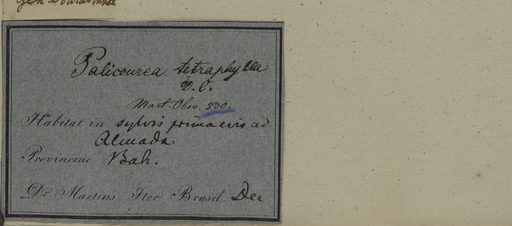 Palicourea tetraphylla
Mart. Obs. 800.
Habitat in sylvis primaevis ad
Almada
Provinciae Bah.
Dr. Martius Iter Brasil. Dec